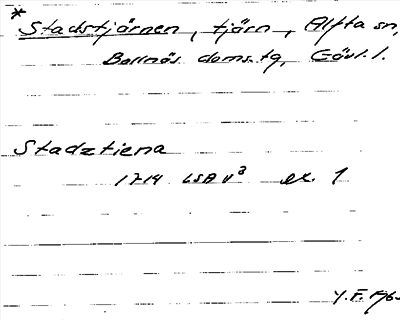 *
Stadstjärnen, tjärn, Alfta sn,
Bollnäs doms.tg, Gävl. l.
Stadztiena
1714 LSA V³ ex. 1